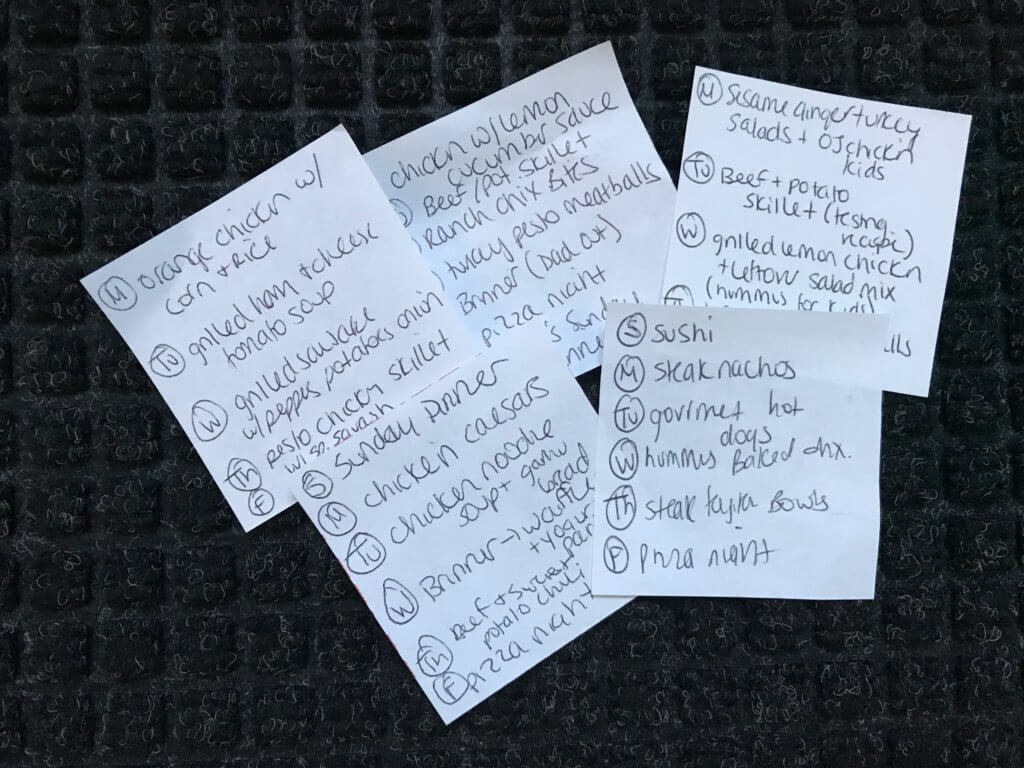 M orange chickn w/
corn + rice
Tu grilled ham + cheese
tomato soup
W grilled sausage
w/ peppes potatoes onion
Th pesto chickn skillet
w/ sp. sqwash
F
chickn w/ lemon
cucumbr sauce
Beef/pot skillet
Ranch chix bites
turkey pesto meatballs
Brinner (Dad out)
pizza night
's Sunday
M Sesame ginger turkey
salads + OJ chickn
kids
Tu Beef + potato
skillet (testng
recipe)
W grilled lemon chickn
+ leftovr salad mix
(hummus for kids)
S Sunday Dinner
M chicken caesars
Tu chicken noodle
soup + garlic
bread
W Brinner → waffle
+ yogurt
Th Beef + sweet
potato chili
F pizza night
S Sushi
M steak nachos
Tu gourmet hot
dogs
W hummus Baked chx.
Th steak fajita Bowls
F pizza night